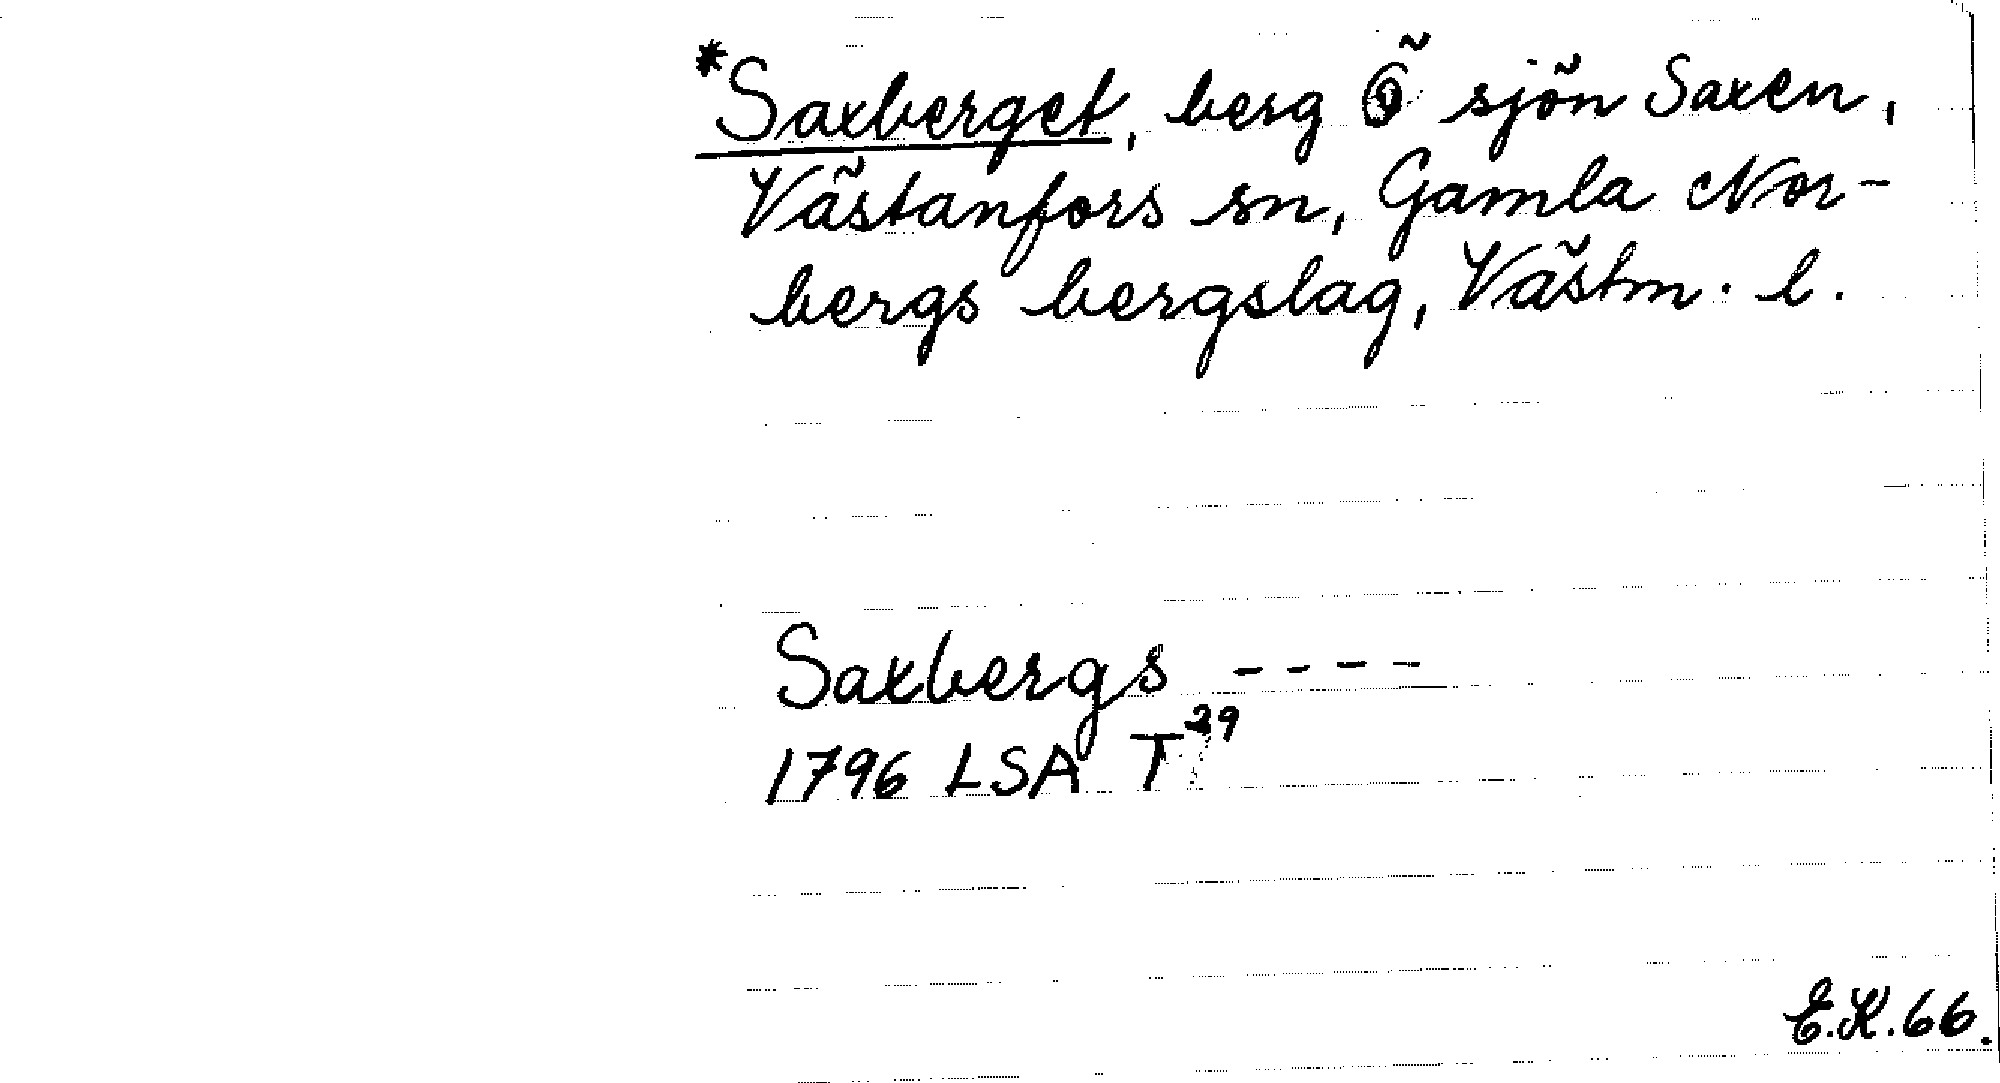 *Saxberget, berg Ö sjön Saxen,
Västanfors sn, Gamla Nor-
bergs bergslag, Västm. l.
Saxbergs ----
1796 LSA T 29
E.K.66.